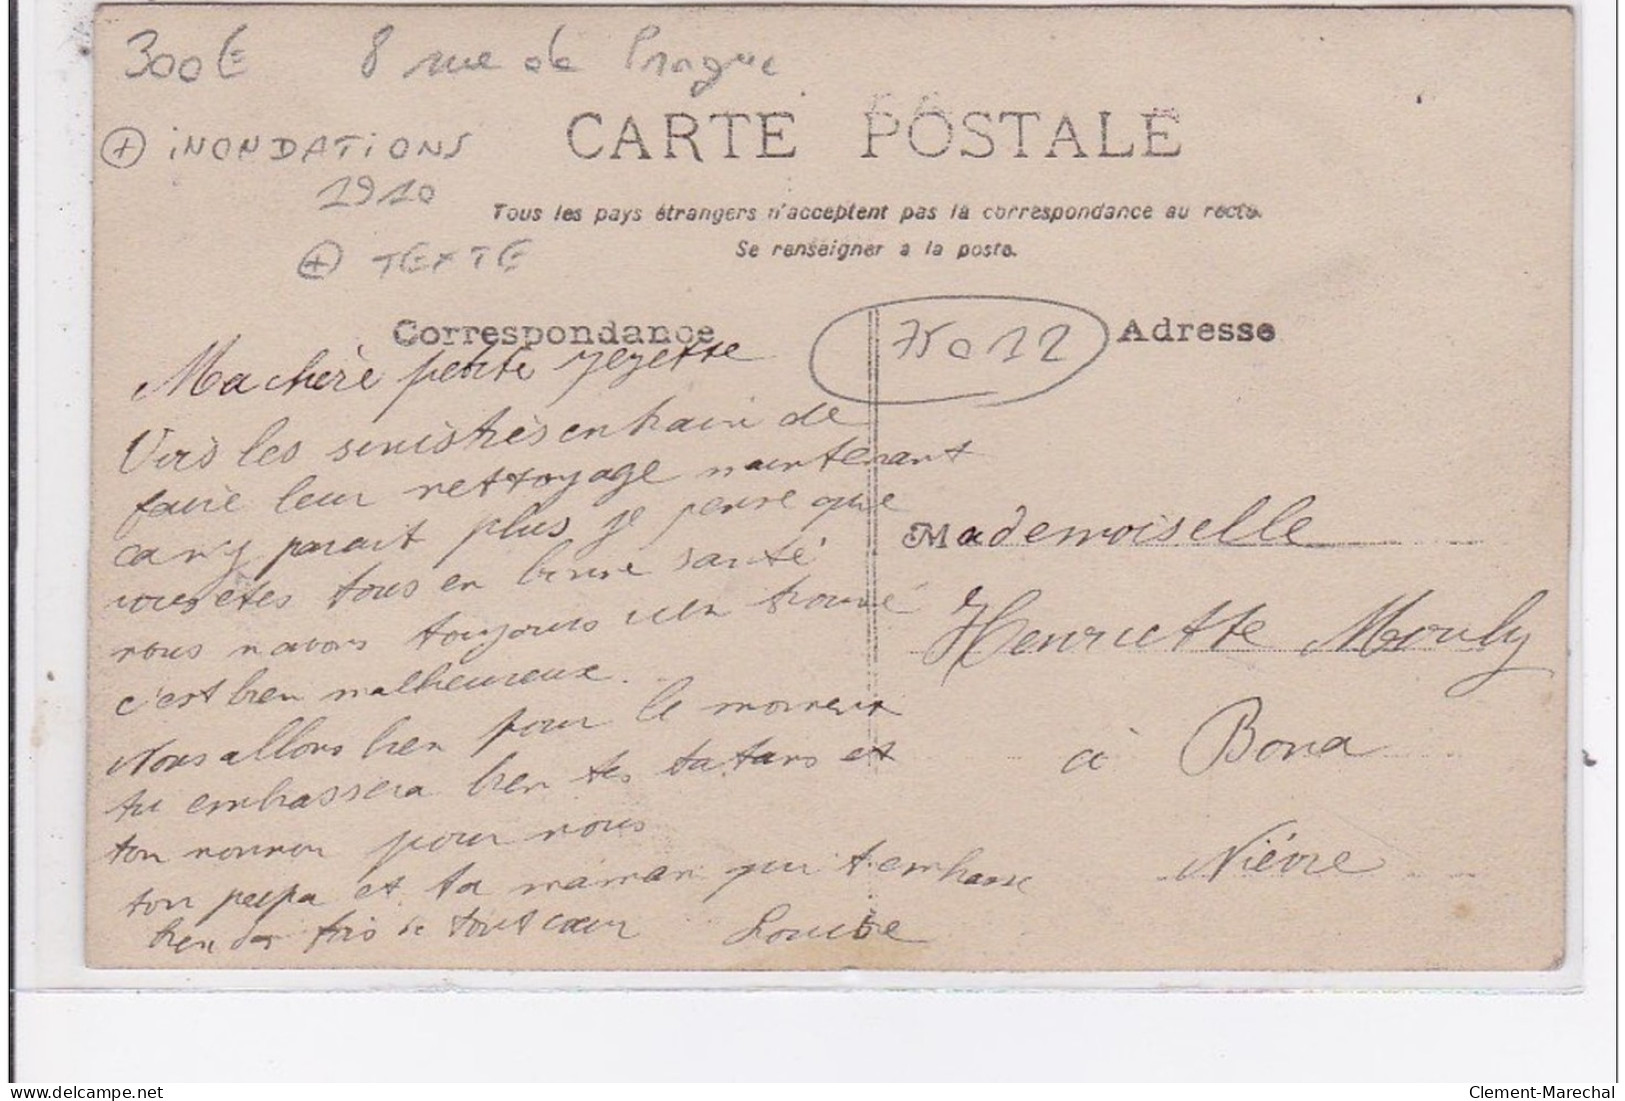 300€ 8 rue de Prague
+ INONDATIONS
1910
+ TEXTE
CARTE POSTALE
Tous les pays étrangers n'acceptent pas la correspondance au recto.
Se renseigner a la poste.
Correspondance
75012
Adresse
Ma chère petite
Vois les sinistrés en train de
faire leur nettoyage maintenant
car y parait plus je pense que
vous etes tous en bonne santé
nous navons toujours rien trouvé
c'est bien malheureux.
Nous allons bien pour le moment
tu embrassera bien tes tatans et
ton nounou pour nous
ton papa et ta maman qui t'embrasse
bien des fois de tout cœur Louise
Mademoiselle
Henriette Mouly
à Bona
Nièvre
Clement-Marechal